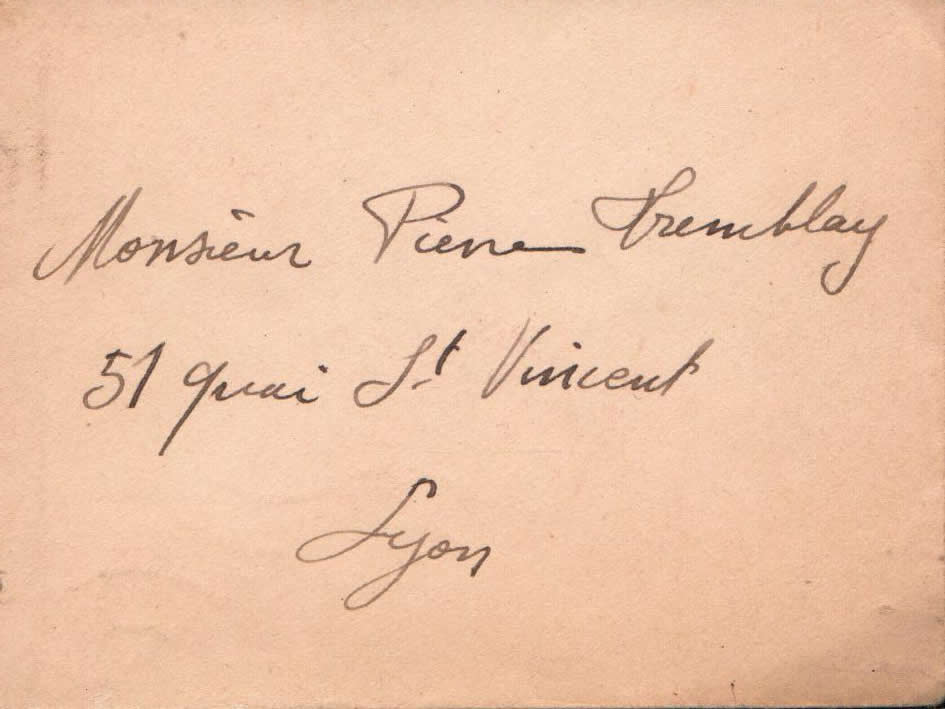 Monsieur Pierre Tremblay
51 quai St. Vincent
Lyon